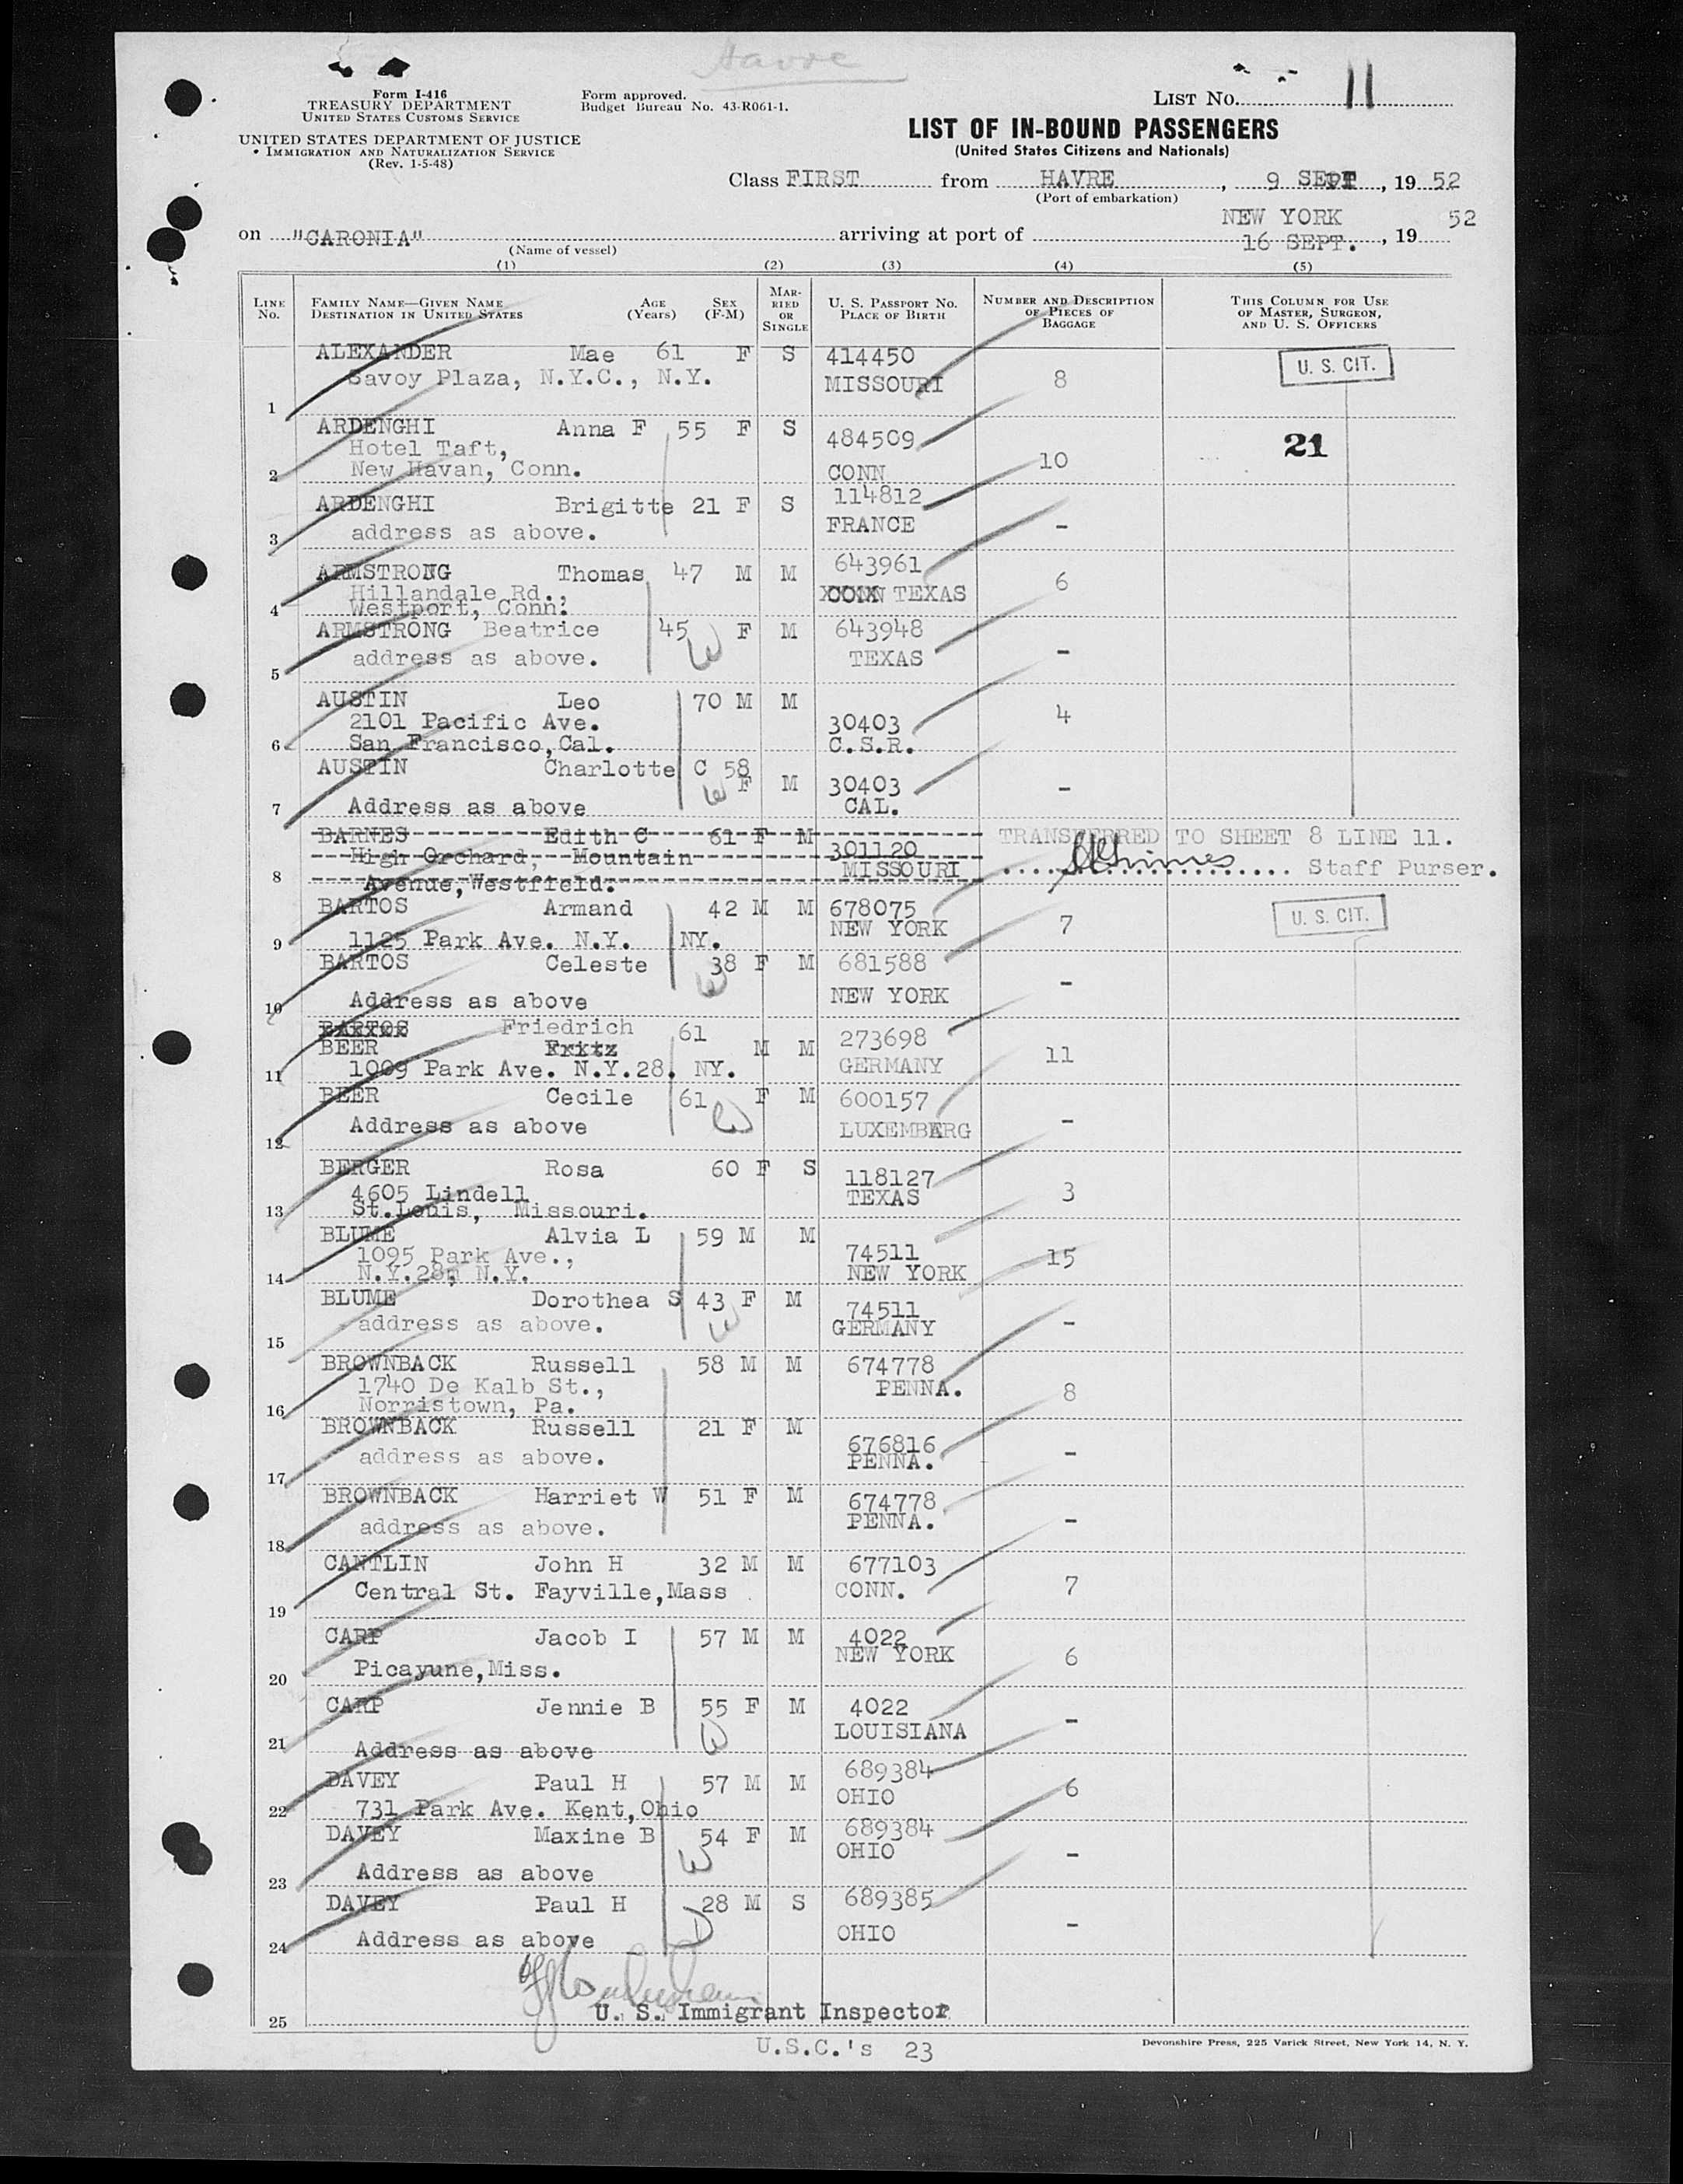 Havre
Form I-416
TREASURY DEPARTMENT
UNITED STATES CUSTOMS SERVICE
UNITED STATES DEPARTMENT OF JUSTICE
IMMIGRATION AND NATURALIZATION SERVICE
(Rev. 1-5-48)
Form approved.
Budget Bureau No. 43-R061-1.
LIST NO. 11
LIST OF IN-BOUND PASSENGERS
(United States Citizens and Nationals)
Class FIRST from HAVRE, 9 SEPT, 19 52
(Port of embarkation)
on "CARONIA" arriving at port of NEW YORK 16 SEPT., 19 52
(Name of vessel)
(1) (2) (3) (4) (5)
LINE NO.
FAMILY NAME—GIVEN NAME
DESTINATION IN UNITED STATES
AGE (Years)
SEX (F-M)
MARRIED OR SINGLE
U. S. PASSPORT NO.
PLACE OF BIRTH
NUMBER AND DESCRIPTION OF PIECES OF BAGGAGE
THIS COLUMN FOR USE OF MASTER, SURGEON, AND U. S. OFFICERS
1 ALEXANDER Mae 61 F S 414450
Savoy Plaza, N.Y.C., N.Y. MISSOURI 8
U. S. CIT.
2 ARDENGHI Anna F 55 F S 484509
Hotel Taft,
New Havan, Conn. CONN 10
21
3 ARDENGHI Brigitte 21 F S 114812
address as above. FRANCE -
4 ARMSTRONG Thomas 47 M M 643961
Hillandale Rd.,
Westport, Conn. TEXAS 6
5 ARMSTRONG Beatrice 45 F M 643948
address as above. TEXAS -
6 AUSTIN Leo 70 M M 30403
2101 Pacific Ave.
San Francisco, Cal. C.S.R. 4
7 AUSTIN Charlotte C 58 F M 30403
Address as above CAL. -
8 BARNES Edith C 61 F M 301120
High Orchard, Mountain
Avenue, Westfield. MISSOURI
TRANSFERRED TO SHEET 8 LINE 11.
Staff Purser.
9 BARTOS Armand 42 M M 678075
1125 Park Ave. N.Y. NY. NEW YORK 7
U. S. CIT.
10 BARTOS Celeste 38 F M 681588
Address as above NEW YORK -
11 BARTOS Friedrich 61 273698
BEER Fritz M M
1009 Park Ave. N.Y.28. NY. GERMANY 11
12 BEER Cecile 61 F M 600157
Address as above LUXEMBERG -
13 BERGER Rosa 60 F S 118127
4605 Lindell
St.Louis, Missouri. TEXAS 3
14 BLUME Alvia L 59 M M 74511
1095 Park Ave.,
N.Y.28, N.Y. NEW YORK 15
15 BLUME Dorothea S 43 F M 74511
address as above. GERMANY -
16 BROWNBACK Russell 58 M M 674778
1740 De Kalb St.,
Norristown, Pa. PENNA. 8
17 BROWNBACK Russell 21 F M 676816
address as above. PENNA. -
18 BROWNBACK Harriet W 51 F M 674778
address as above. PENNA. -
19 CANTLIN John H 32 M M 677103
Central St. Fayville, Mass CONN. 7
20 CARP Jacob I 57 M M 4022
Picayune, Miss. NEW YORK 6
21 CARP Jennie B 55 F M 4022
Address as above LOUISIANA -
22 DAVEY Paul H 57 M M 689384
731 Park Ave. Kent, Ohio OHIO 6
23 DAVEY Maxine B 54 F M 689384
Address as above OHIO -
24 DAVEY Paul H 28 M S 689385
Address as above OHIO -
25
U. S. Immigrant Inspector
U.S.C.'s 23
Devonshire Press, 225 Varick Street, New York 14, N. Y.